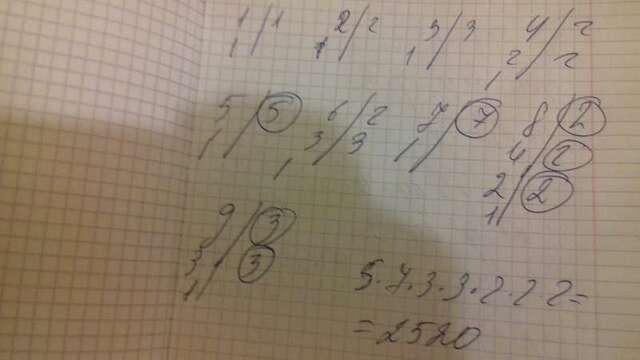 1/1 2/2 3/3 4/2
1 1 1 2/2
1
5/5 6/2 7/7 8/2
1 3/3 1 4/2
1 2/2
1
9/3
3/3
1
5·7·3·3·2·2·2=
=2520